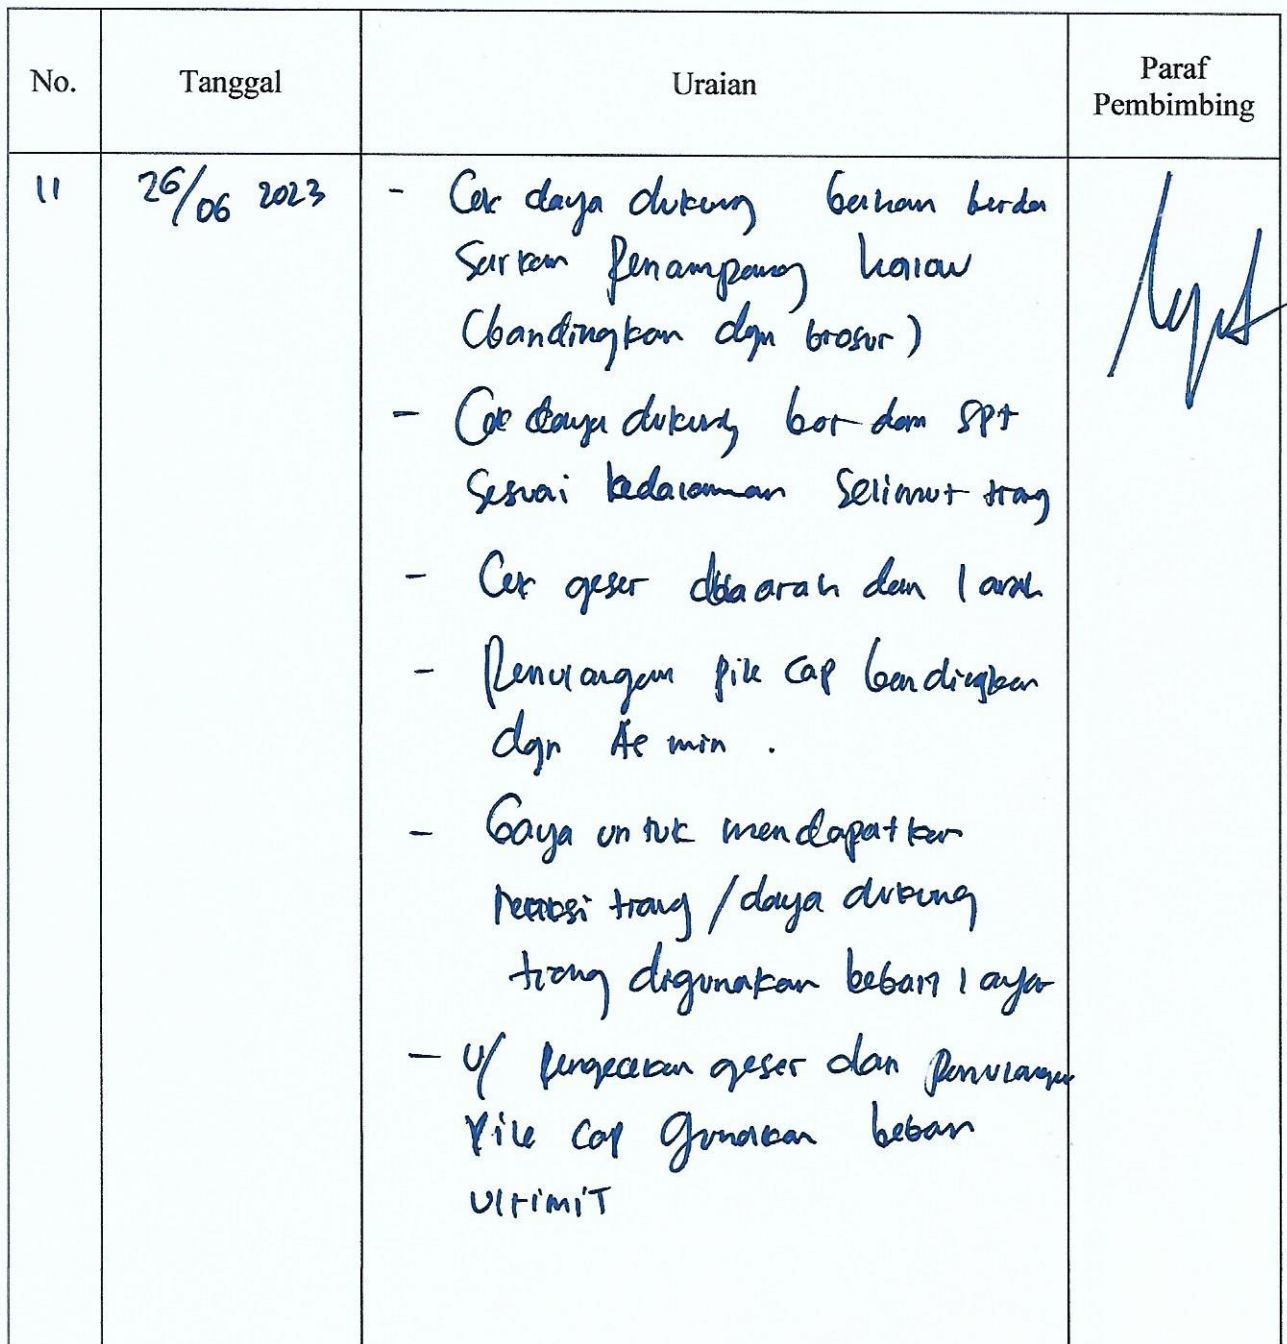 No.
Tanggal
Uraian
Paraf
Pembimbing
11
26/06 2023
- Cek daya dukung bahan berda
sarkan Penampang kolom
(bandingkan dgn brosur)
- Cek daya dukung bor dan SPT
Sesuai kedalaman Selimut tiang
- Cek geser dua arah dan 1 arah
- Penulangan pile cap bandingkan
dgn As min.
- Gaya untuk mendapatkan
reaksi tiang / daya dukung
tiang digunakan beban layan
- U/ pengecekan geser dan penulangan
Pile cap gunakan beban
UltimiT